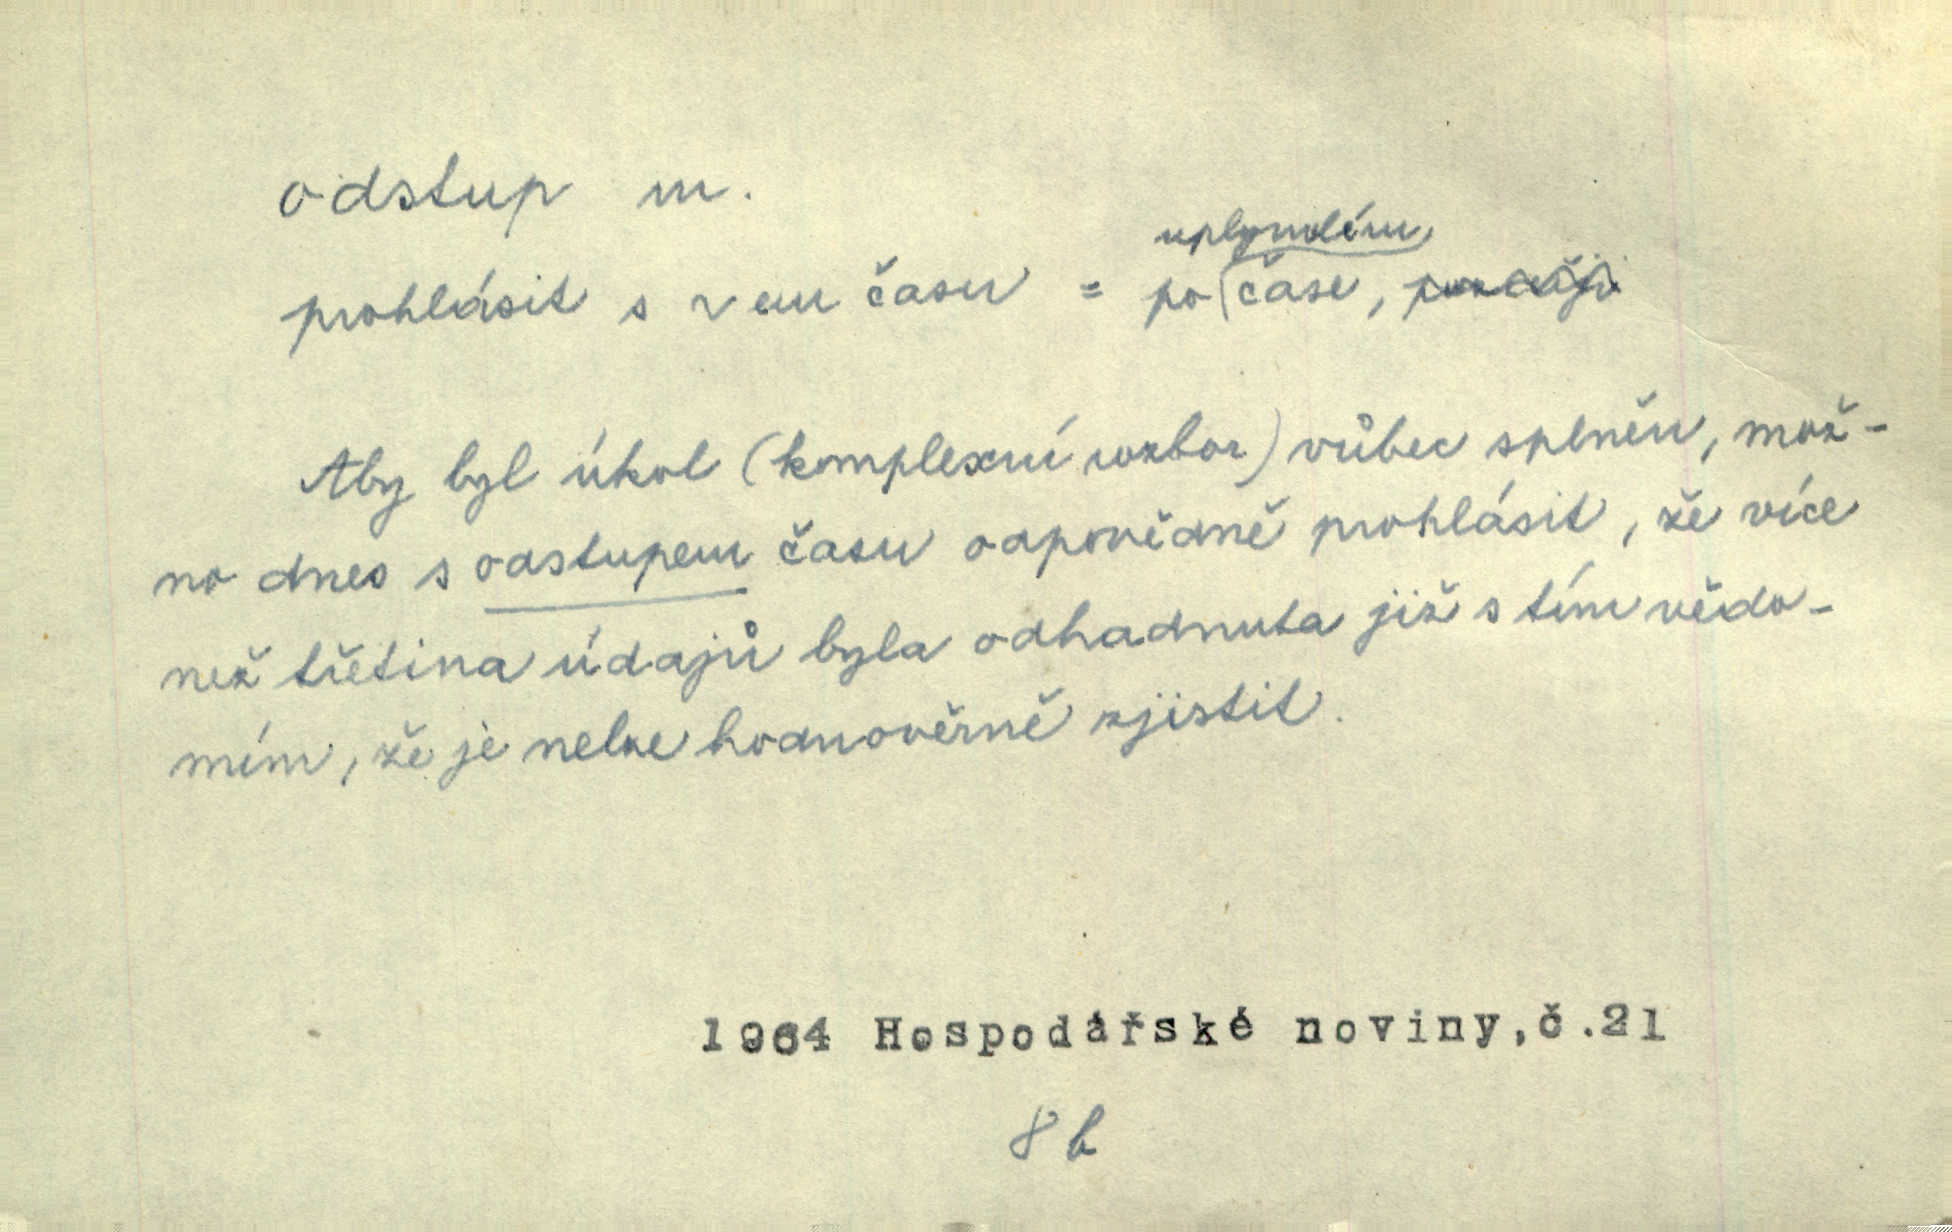 odstup m.
uplynulém
prohlásit s ~ em času = po čase, později
Aby byl úkol (komplexní rozbor) vůbec splněn, mož-
no dnes s odstupem času odpovědně prohlásit, že více
než třetina údajů byla odhadnuta již s tím vědo-
mím, že je nelze hodnověrně zjistit.
1964 Hospodářské noviny,č.21
8 b